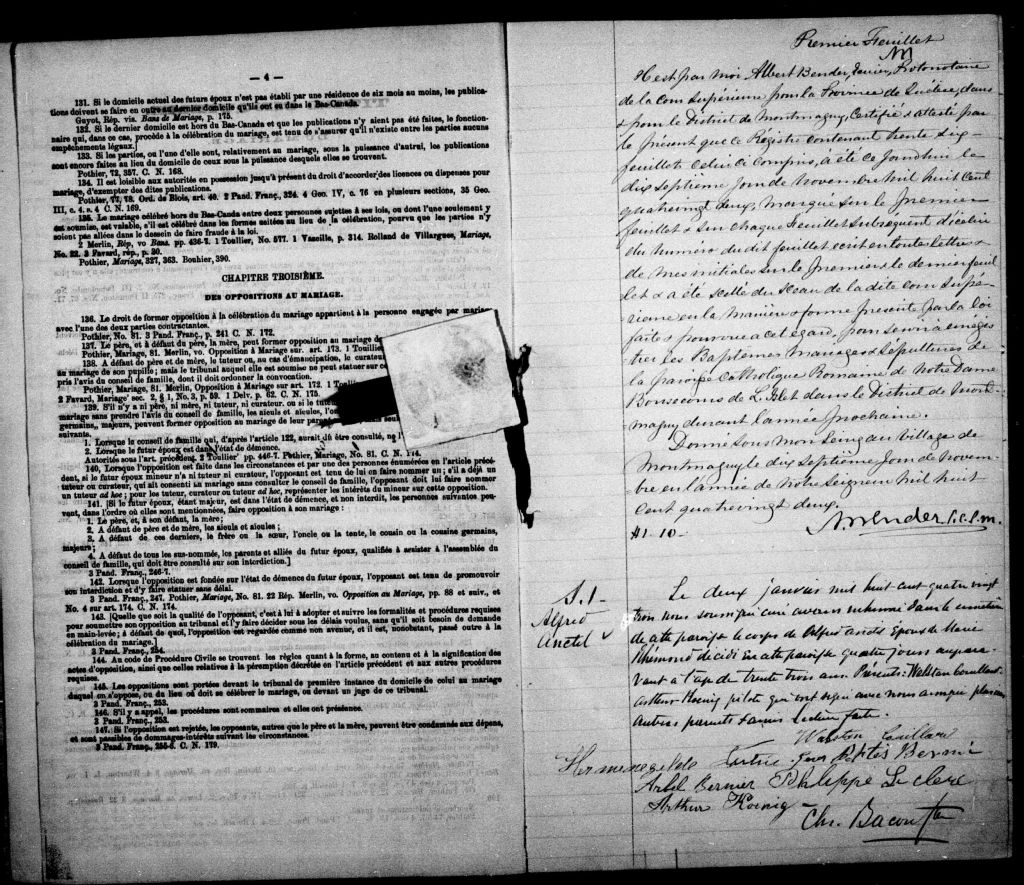 — 4 —
131. Si le domicile actuel des futurs époux n'est pas établi par une résidence de six mois au moins, les publica-
tions doivent se faire en outre au dernier domicile qu'ils ont eu dans le Bas-Canada.
Guyot, Rép. vis. Bans de Mariage, p. 175.
132. Si le dernier domicile est hors du Bas-Canada et que les publications n'y aient pas été faites, le fonction-
naire qui, dans ce cas, procède à la célébration du mariage, est tenu de s'assurer qu'il n'existe entre les parties aucuns
empêchements légaux.]
133. Si les parties, ou l'une d'elle sont, relativement au mariage, sous la puissance d'autrui, les publications
sont encore faites au lieu du domicile de ceux sous la puissance desquels elles se trouvent.
Pothier, 72, 357. C. N. 168.
134. Il est loisible aux autorités en possession jusqu'à présent du droit d'accorder des licences ou dispenses pour
mariage, d'exempter des dites publications.
Pothier, 77, 78. Ord. de Blois, art. 40. 2 Pand. Franç., 324. 4 Geo. IV, c. 76 en plusieurs sections, 35 Geo.
III, c. 4 s. 4 C. N. 169.
135. Le mariage célébré hors du Bas-Canada entre deux personnes sujettes à ses lois, ou dont l'une seulement y
est soumise, est valable, s'il est célébré dans les formes usitées au lieu de la célébration, pourvu que les parties n'y
soient pas allées dans le dessein de faire fraude à la loi.
2 Merlin, Rép. vo Bans, pp. 436-7. 1 Toullier, No. 577. 1 Vazeille, p. 314. Rolland de Villargues, Mariage,
No. 22. 3 Favard, rép., p. 30.
Pothier, Mariage, 327, 363. Bouhier, 390.
CHAPITRE TROISIÈME.
DES OPPOSITIONS AU MARIAGE.
136. Le droit de former opposition à la célébration du mariage appartient à la personne engagée par mariage
avec l'une des deux parties contractantes.
Pothier, No. 81. 3 Pand. Franç., p. 241 C. N. 172.
137. Le père, et à défaut du père, la mère, peut former opposition au mariage de
Pothier, Mariage, 81. Merlin, vo. Opposition à Mariage sur. art. 173. 1 Toullier
138. A défaut de père et de mère, le tuteur ou, au cas d'émancipation, le curateur
au mariage de son pupille; mais le tribunal auquel elle est soumise ne peut statuer sur ce
pris l'avis du conseil de famille, dont il doit ordonner la convocation.
Pothier, Mariage, 81. Merlin, Opposition à Mariage sur art. 172. 1 Toull
2 Favard, Mariage, sec. 2, § 1, No. 3, p. 59. 1 Delv. p. 62. C. N. 175.
139. S'il n'y a ni père, ni mère, ni tuteur, ni curateur. ou si le tuteur
mariage sans prendre l'avis du conseil de famille, les aïeuls et aïeules,
germains, majeurs, peuvent former opposition au mariage de leur parent
suivants.
1. Lorsque le conseil de famille qui, d'après l'article 122, aurait dû être consulté,
2. Lorsque le futur époux est dans l'état de démence.
Autorités sous l'art. précédent. 2 Toullier pp. 446-7. Pothier, Mariage, No. 81. C. N. 174.
140. Lorsque l'opposition est faite dans les circonstances et par une des personnes énumérées en l'article précé-
dent, si le futur époux mineur n'a ni tuteur ni curateur, l'opposant est tenu de lui en faire nommer un; s'il a déjà un
tuteur ou curateur, qui ait consenti au mariage sans consulter le conseil de famille, l'opposant doit lui faire nommer
un tuteur ad hoc; pour les tuteur, curateur ou tuteur ad hoc, représenter les intérêts du mineur sur cette opposition.
141. [Si le futur époux, étant majeur, est dans l'état de démence, et non interdit, les personnes suivantes peu-
vent, dans l'ordre où elles sont mentionnées, faire opposition à son mariage:
1. Le père, et, à son défaut, la mère;
2. A défaut de père et de mère, les aïeuls et aïeules;
3. A défaut de ces derniers, le frère ou la sœur, l'oncle ou la tente, le cousin ou la cousine germains,
majeurs;
4. A défaut de tous les sus-nommés, les parents et alliés du futur époux, qualifiés à assister à l'assemblée du
conseil de famille, qui doit être consulté sur son interdiction.]
3 Pand. Franç., 246-7.
142. Lorsque l'opposition est fondée sur l'état de démence du futur époux, l'opposant est tenu de promouvoir
son interdiction et d'y faire statuer sans délai.
3 Pand. Franç., 247. Pothier, Mariage, No. 81. 22 Rép. Merlin, vo. Opposition au Mariage, pp. 88 et suiv., et
No. 4 sur art. 174. C. N. 174.
143. [Quelle que soit la qualité de l'opposant, c'est à lui à adopter et suivre les formalités et procédures requises
pour soumettre son opposition au tribunal et l'y faire décider sous les délais voulus, sans qu'il soit besoin de demande
en main-levée; à défaut de quoi, l'opposition est regardée comme non avenue, et il est, nonobstant, passé outre à la
célébration du mariage.]
3 Pand. Franç., 254.
144. Au code de Procédure Civile se trouvent les règles quant à la forme, au contenu et à la signification des
actes d'opposition, ainsi que celles relatives à la péremption décrétée en l'article précédent et aux autres procédures
requises.
145. Les oppositions sont portées devant le tribunal de première instance du domicile de celui au mariage
duquel on s'oppose, ou du lieu où doit se célébrer le mariage, ou devant un juge de ce tribunal.
3 Pand. Franç., 253.
146. S'il y a appel, les procédures sont sommaires et elles ont préséance.
3 Pand. Franç., 253.
147. Si l'opposition est rejetée, les opposants, autres que le père et la mère, peuvent être condamnés aux dépens,
et sont passibles de dommages-intérêts suivant les circonstances.
3 Pand. Franç., 255-6. C. N. 179.
Premier Feuillet
C'est par moi Albert Bender, Ecuier, Protonotaire
de la Cour Supérieure pour la Province de Québec, dans
& pour le District de Montmagny, Certifié & attesté par
le présent que ce Régistre contenant trente six
feuillets celui ci compris, a été ce jourd'hui le
dix septième jour de Novembre mil huit cent
quatrevingt deux, marqué sur le premier
feuillet & sur chaque feuillet subséquent d'icelui
du numéro du dit feuillet écrit en toutes lettres &
de mes initiales sur le premier & le dernier feuil
let & a été scellé du sceau de la dite cour supé-
rieure en la manière & forme présente par la loi
faite & pourvue à cet égard, pour servir à enrégis
trer les Baptêmes Mariages & Sépultures de
la paroisse Catholique Romaine de Notre Dame
Bonsecours de L'Islet dans le District de Mont
magny durant l'année prochaine.
Donné sous mon seing au Village de
Montmagny le dix septième jour de Novem-
bre en l'année de Notre Seigneur mil huit
cent quatrevingt deux.
A Bender P.C.S.M.
$1-10-
S. 1-
Alfred
Anctil
Le deux janvier mil huit cent quatre vingt
trois nous soussigné curé avons inhumé dans le cimetière
de cette paroisse le corps de Alfred Anctil Epoux de Marie
décédé en cette paroisse quatre jours aupara
vant à l'age de trente trois ans. Présents: Walstan Couillard
Arthur Koenig pilote qui ont signé avec nous ainsi que plusieurs
autres parents & amis Lecture faite.
Walstan Couillard
Hermenegilde
Bernier
Arbel Bernier Philippe Leclerc
Arthur Koenig
Chs. Bacon Ptre